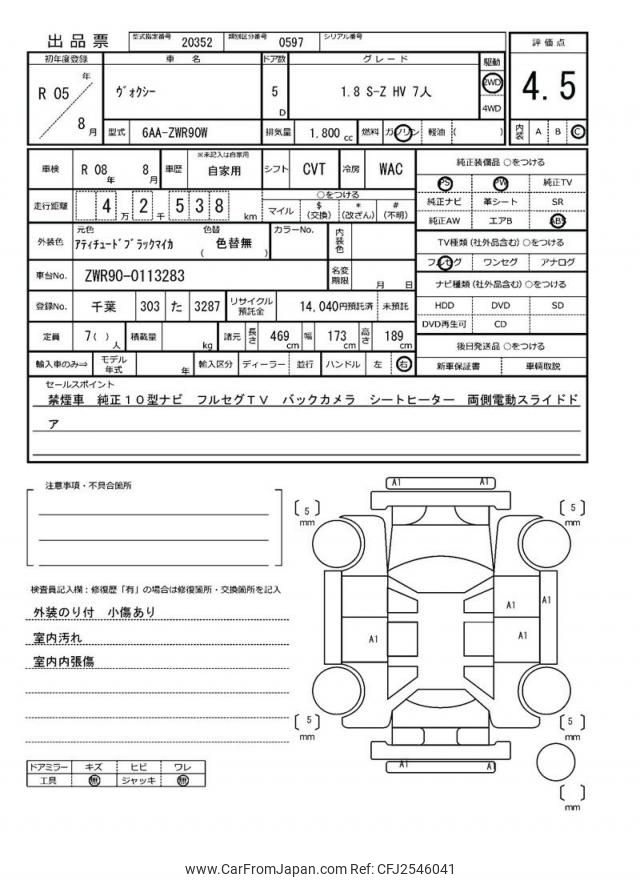 出品票 型式指定番号 20352 類別区分番号 0597 シリアル番号
評価点
4.5
内装 A B C
初年度登録 車名 ドア数 グレード 駆動
R 05 年 8 月
ヴォクシー 5 D 1.8 S-Z HV 7人 2WD
4WD
型式 6AA-ZWR90W 排気量 1.800 cc 燃料 ガソリン 軽油 ( )
車検 R 08 年 8 月 車歴 ※未記入は自家用 自家用 シフト CVT 冷房 WAC
走行距離 4 万 2 千 5 3 8 km
○をつける
マイル $ (交換) * (改ざん) # (不明)
外装色 元色 アティチュードブラックマイカ 色替 ( 色替無 ) カラーNo. 内装色
車台No. ZWR90-0113283 名変期限 月 日
登録No. 千葉 303 た 3287 リサイクル預託金 14,040円預託済 未預託
定員 7( ) 人 積載量 kg 諸元 長さ 469 cm 幅 173 cm 高さ 189 cm
輸入車のみ⇒ モデル年式 年 輸入区分 ディーラー 並行 ハンドル 左 右
純正装備品 ○をつける
PS PW 純正TV
純正ナビ 革シート SR
純正AW エアB ABS
TV種類 (社外品含む) ○をつける
フルセグ ワンセグ アナログ
ナビ種類 (社外品含む) ○をつける
HDD DVD SD
DVD再生可 CD
後日発送品 ○をつける
新車保証書 車輌取説
セールスポイント
禁煙車 純正10型ナビ フルセグTV バックカメラ シートヒーター 両側電動スライドド
ア
注意事項・不具合箇所
検査員記入欄:修復歴「有」の場合は修復箇所・交換箇所を記入
外装のり付 小傷あり
室内汚れ
室内内張傷
ドアミラー キズ ヒビ ワレ
工具 無 ジャッキ 無
A1 A1
[ 5 ] mm
[ 5 ] mm
A1 A1
A1 A1
[ 5 ] mm
[ 5 ] mm
A1 A1
[ ] mm
www.CarFromJapan.com Ref: CFJ2546041